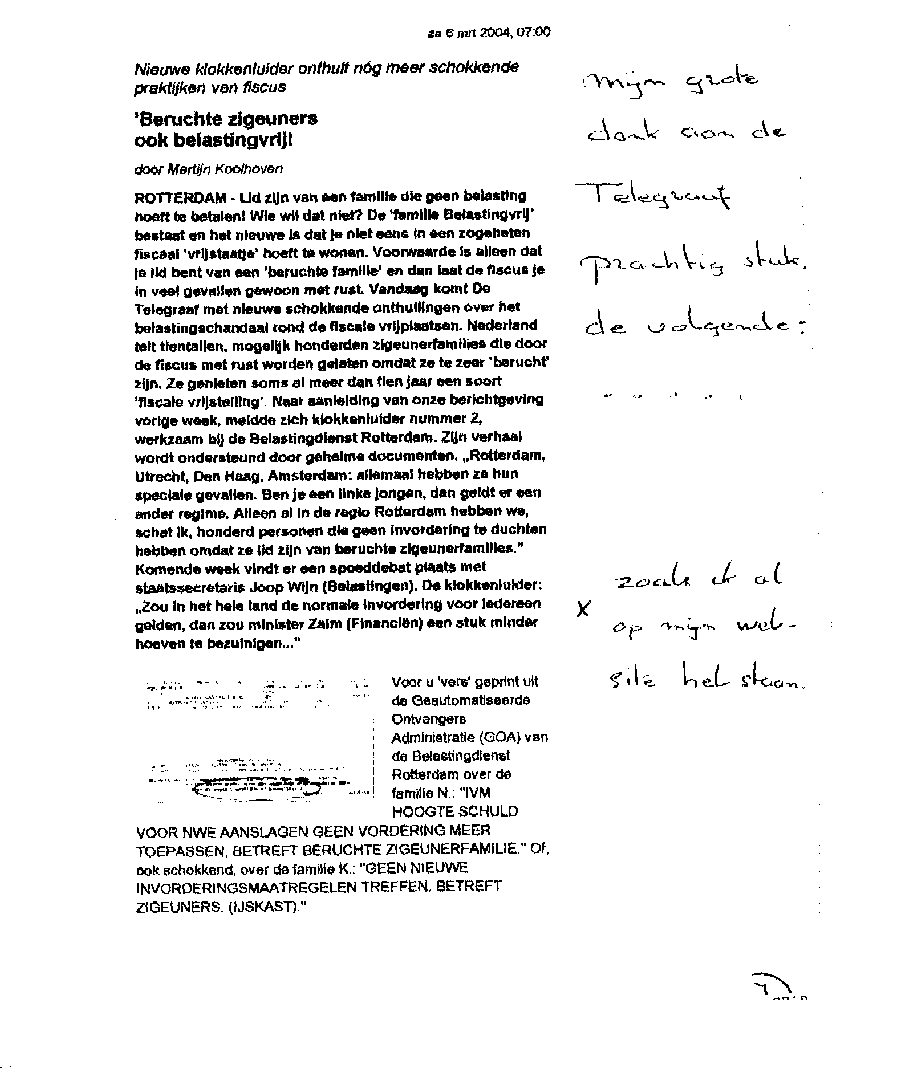 za 6 mrt 2004, 07:00
Nieuwe klokkenluider onthult nóg meer schokkende
praktijken van fiscus
'Beruchte zigeuners
ook belastingvrij!
door Martijn Koolhoven
ROTTERDAM - Lid zijn van een familie die geen belasting
hoeft te betalen! Wie wil dat niet? De 'familie Belastingvrij'
bestaat en het nieuwe is dat je niet eens in een zogeheten
fiscaal 'vrijstaatje' hoeft te wonen. Voorwaarde is alleen dat
je lid bent van een 'beruchte familie' en dan laat de fiscus je
in veel gevallen gewoon met rust. Vandaag komt De
Telegraaf met nieuwe schokkende onthullingen over het
belastingschandaal rond de fiscale vrijplaatsen. Nederland
telt tientallen, mogelijk honderden zigeunerfamilies die door
de fiscus met rust worden gelaten omdat ze te zeer 'berucht'
zijn. Ze genieten soms al meer dan tien jaar een soort
'fiscale vrijstelling'. Naar aanleiding van onze berichtgeving
vorige week, meldde zich klokkenluider nummer 2,
werkzaam bij de Belastingdienst Rotterdam. Zijn verhaal
wordt ondersteund door geheime documenten. „Rotterdam,
Utrecht, Den Haag, Amsterdam: allemaal hebben ze hun
speciale gevallen. Ben je een linke jongen, dan geldt er een
ander regime. Alleen al in de regio Rotterdam hebben we,
schat ik, honderd personen die geen invordering te duchten
hebben omdat ze lid zijn van beruchte zigeunerfamilies."
Komende week vindt er een spoeddebat plaats met
staatssecretaris Joop Wijn (Belastingen). De klokkenluider:
„Zou in het hele land de normale invordering voor iedereen
gelden, dan zou minister Zalm (Financiën) een stuk minder
hoeven te bezuinigen..."
Voor u 'vers' geprint uit
de Geautomatiseerde
Ontvangers
Administratie (GOA) van
de Belastingdienst
Rotterdam over de
familie N.: "IVM
HOOGTE SCHULD
VOOR NWE AANSLAGEN GEEN VORDERING MEER
TOEPASSEN, BETREFT BERUCHTE ZIGEUNERFAMILIE." Of,
ook schokkend, over de familie K.: "GEEN NIEUWE
INVORDERINGSMAATREGELEN TREFFEN. BETREFT
ZIGEUNERS. (IJSKAST)."
mijn grote
dank aan de
Telegraaf
prachtig stuk.
de volgende:
zoals ik al
X op mijn web-
site heb staan.